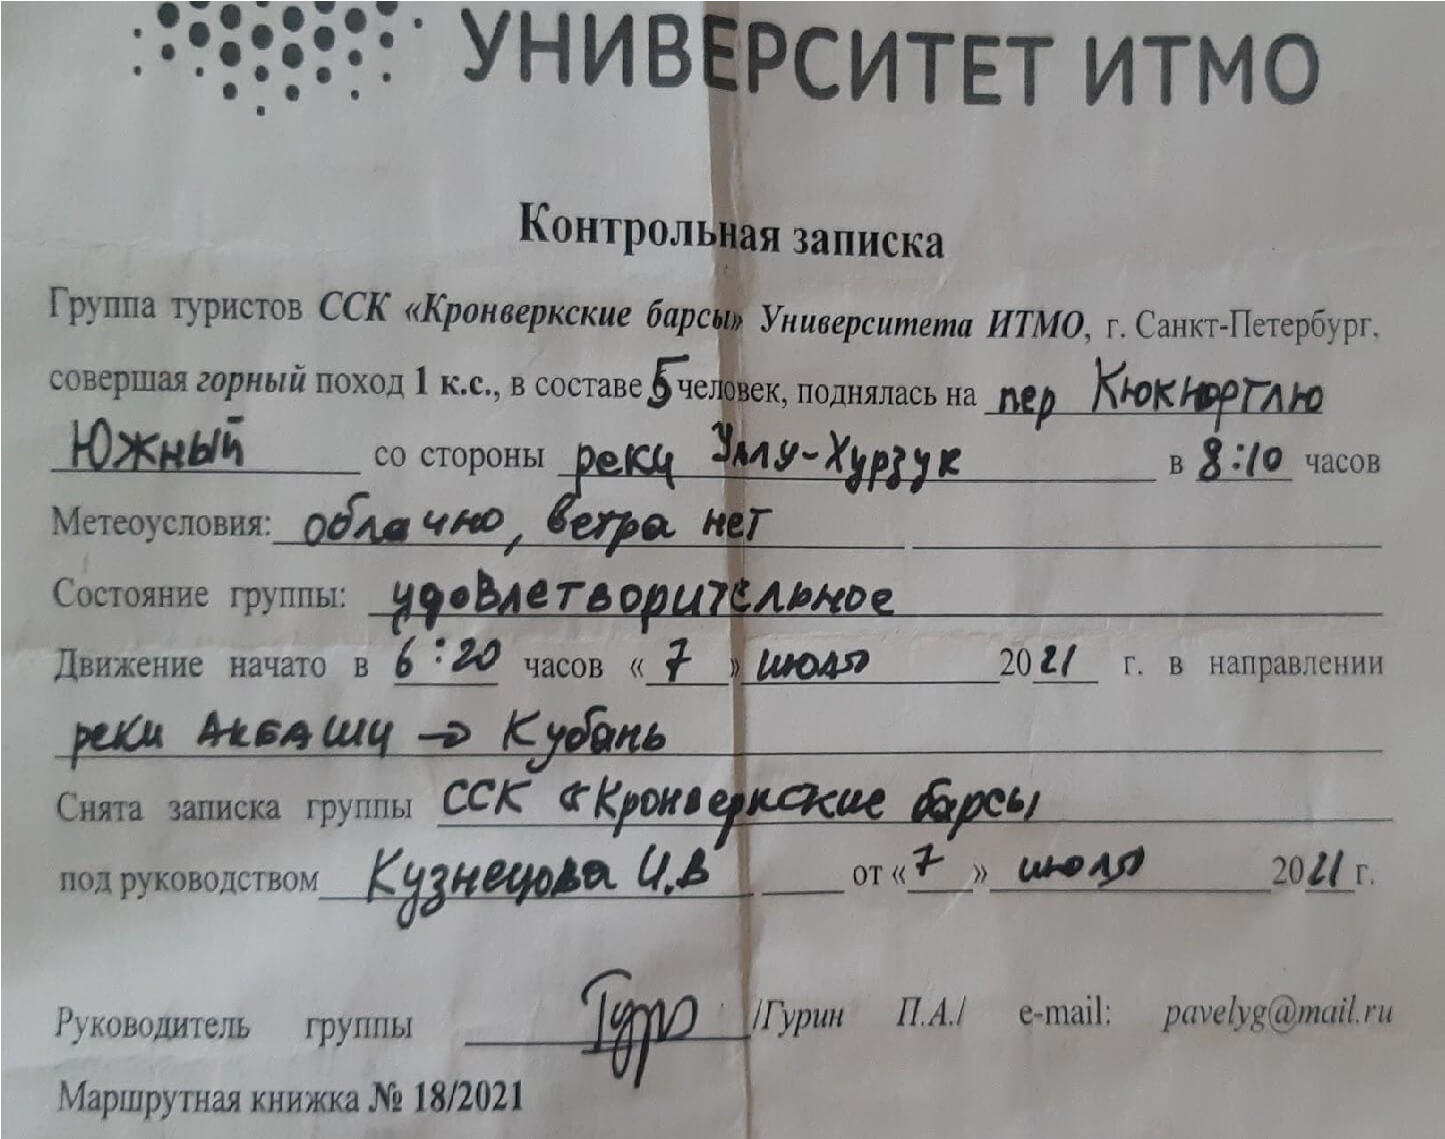 УНИВЕРСИТЕТ ИТМО
Контрольная записка
Группа туристов ССК «Кронверкские барсы» Университета ИТМО, г. Санкт-Петербург,
совершая горный поход 1 к.с., в составе 5 человек, поднялась на пер Кюкюртлю
Южный со стороны реки Уллу-Хурзук в 8:10 часов
Метеоусловия: облачно, ветра нет
Состояние группы: удовлетворительное
Движение начато в 6:20 часов «7» июля 2021 г. в направлении
реки Акбаши → Кубань
Снята записка группы ССК «Кронверкские барсы
под руководством Кузнецова И.В от «7» июля 2021 г.
Руководитель группы /Гурин П.А./ e-mail: pavelyg@mail.ru
Маршрутная книжка № 18/2021